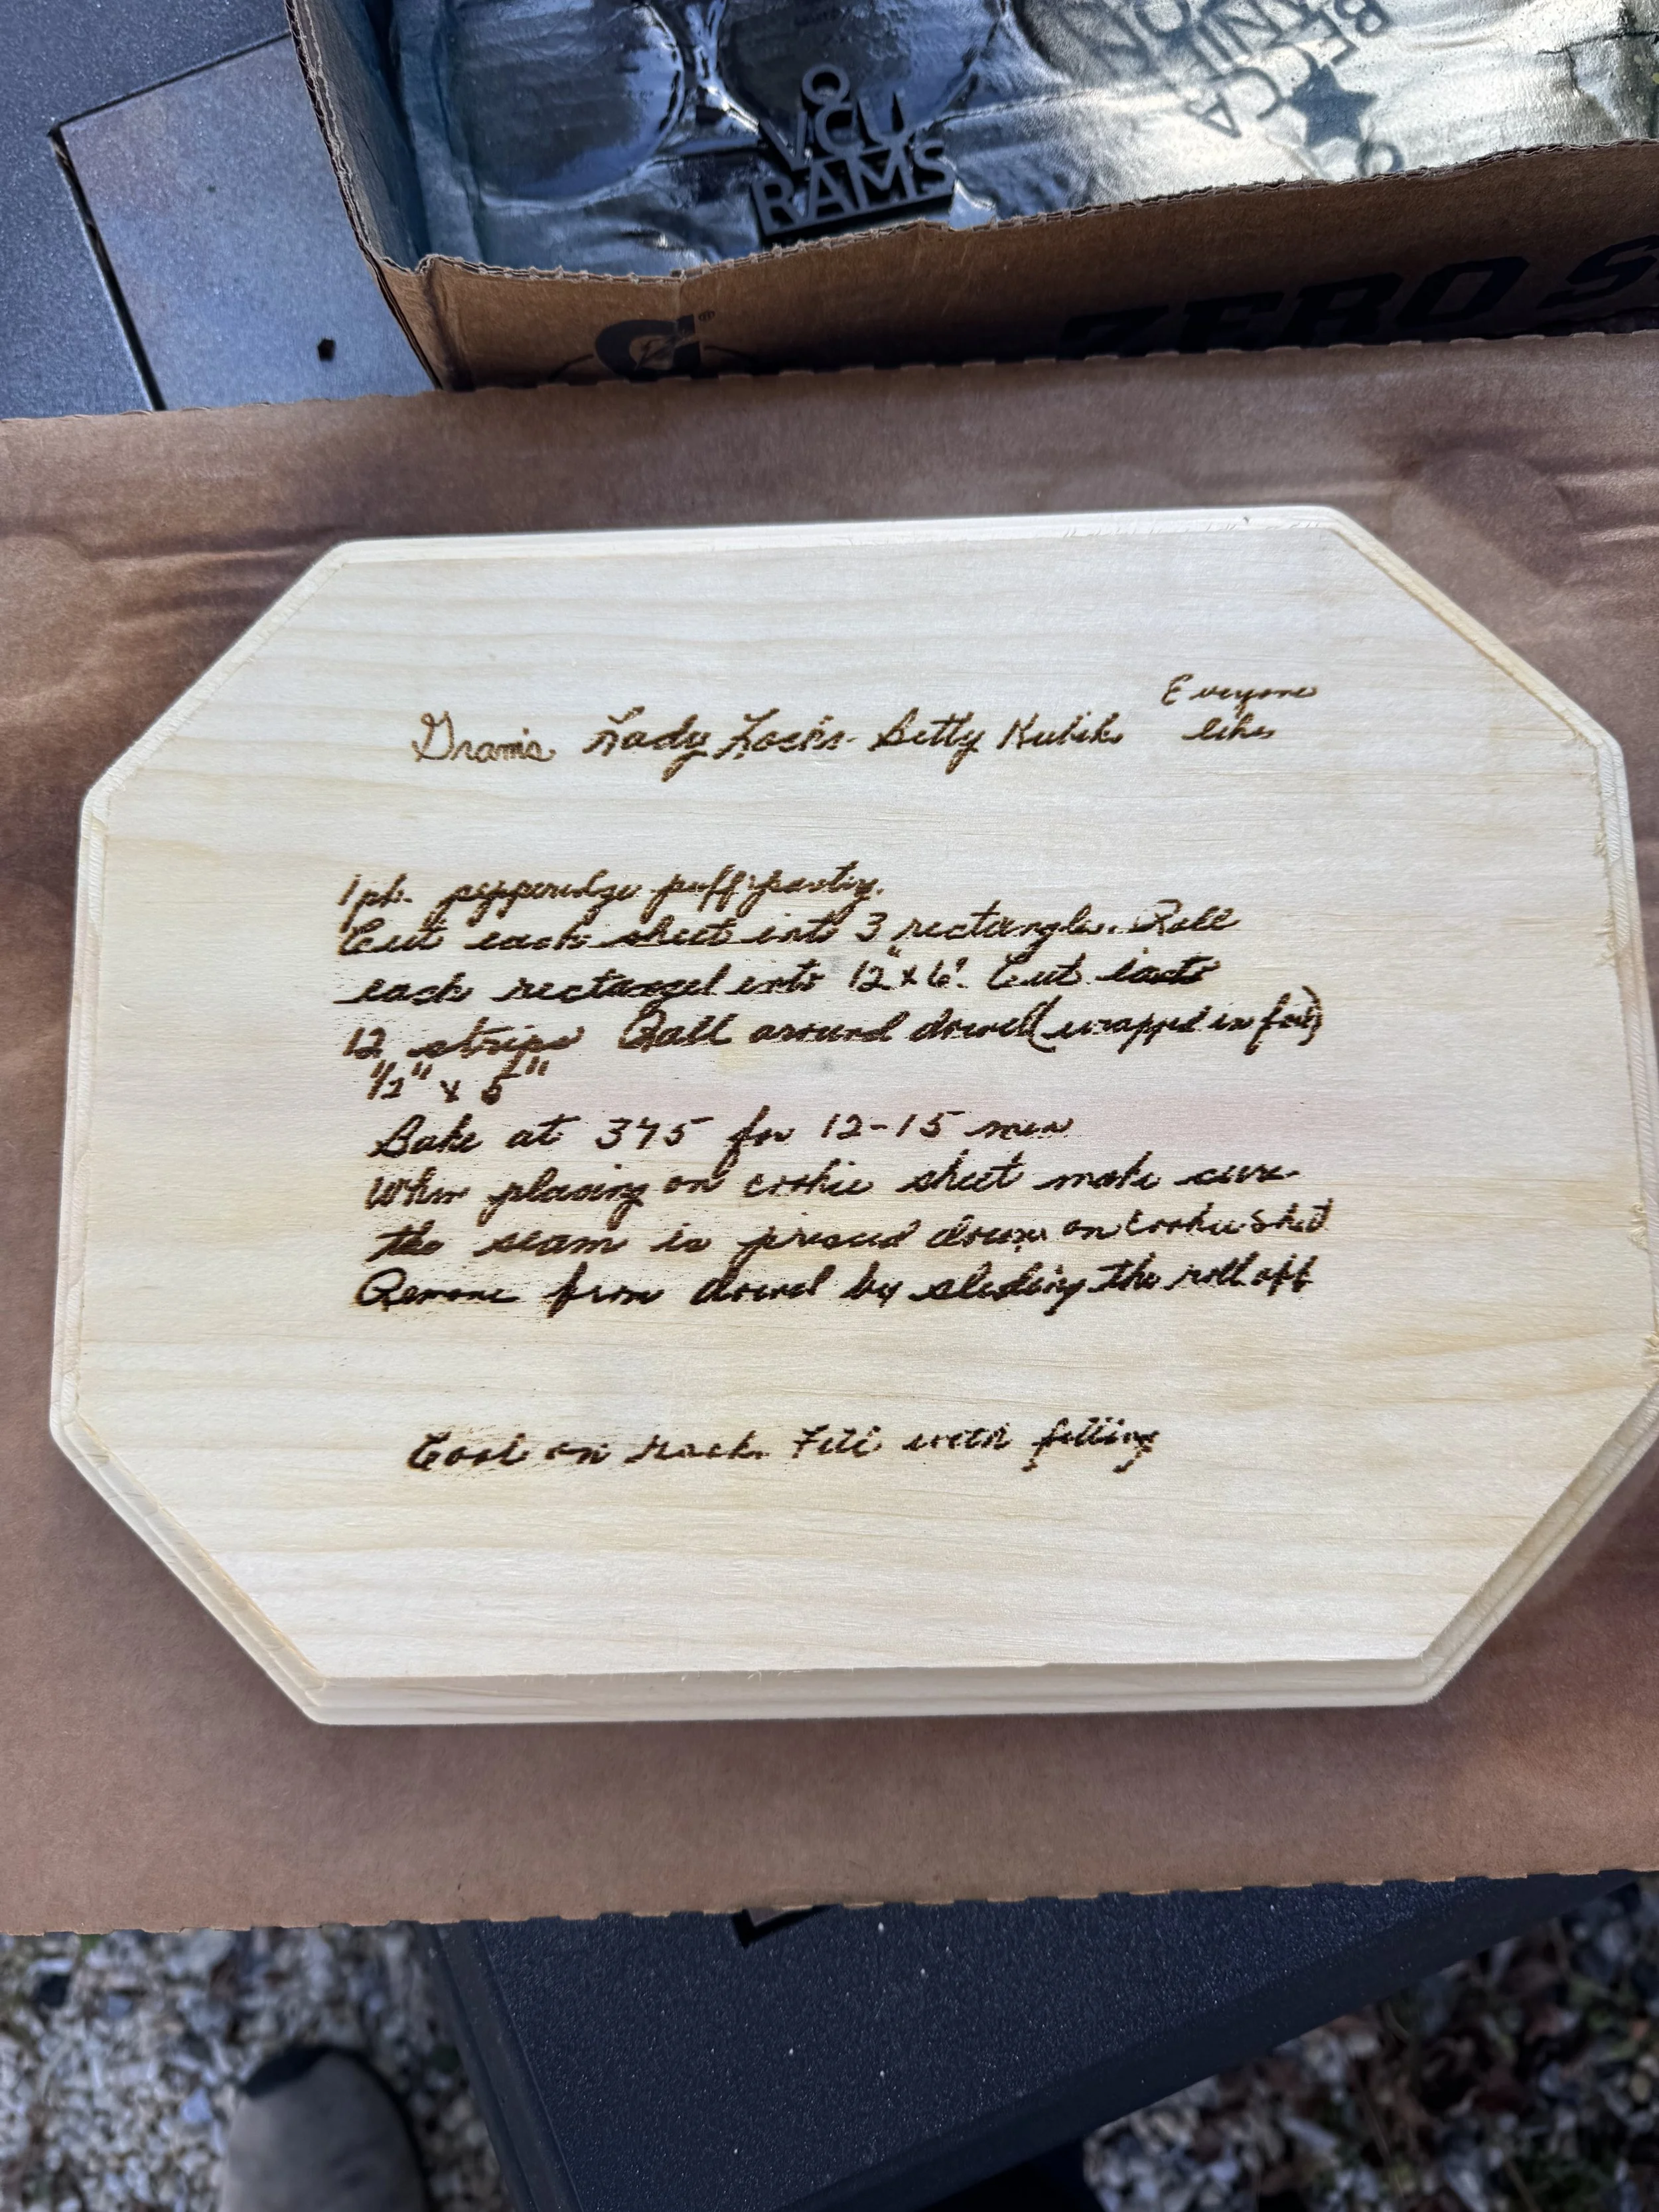 VCU
RAMS
ZERO S
Everyone
Gram's Lady Locks - Betty Kubik likes
1 pk. pepperidge puff pastry.
Cut each sheet into 3 rectangles. Roll
each rectangel into 12" x 6". Cut into
12 strips Roll around dowel (wrapped in foil)
1/2" x 5"
Bake at 375 for 12-15 min
When placing on cookie sheet make sure
the seam is pressed down on cookie sheet
Remove from dowel by sliding the roll off
Cool on rack. Fill with filling